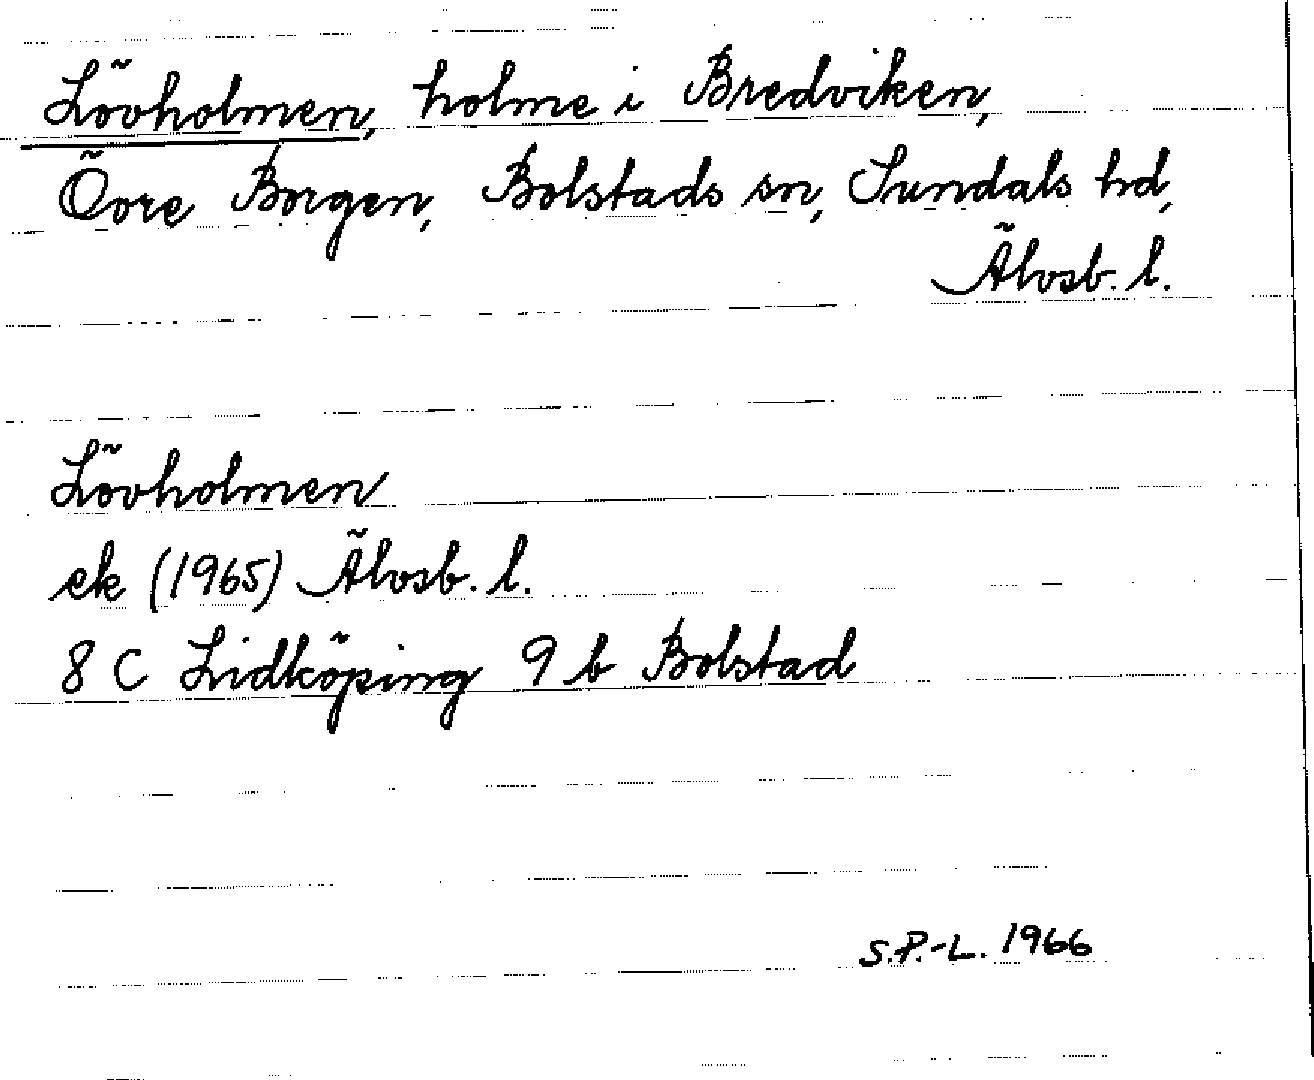 Lövholmen, holme i Bredviken,
Övre Borgen, Bolstads sn, Sundals hd,
Älvsb. l.
Lövholmen
ek (1965) Älvsb. l.
8 C Lidköping 9 b Bolstad
S.P.-L. 1966